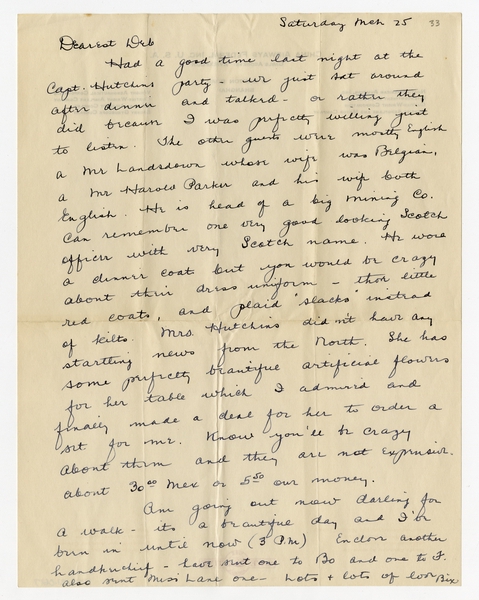 Saturday Mch 25
33
Dearest Deb
Had a good time last night at the
Capt. Hutchins party - we just sat around
after dinner and talked - or rather they
did because I was perfectly willing just
to listen. The other guests were mostly English
a Mr Landsdown whose wife was Belgian,
a Mr Harold Parker and his wife both
English. He is head of a big Mining Co.
Can remember one very good looking Scotch
officer with very Scotch name. He wore
a dinner coat but you would be crazy
about their dress uniform - those little
red coats, and plaid "slacks" instead
of kilts. Mrs. Hutchins didn't have any
startling news from the North. She has
some perfectly beautiful artificial flowers
for her table which I admired and
finally made a deal for her to order a
set for me. Know you'll be crazy
about them and they are not expensive.
about 30.00 Mex or 5.50 our money.
Am going out now darling for
a walk - its a beautiful day and I've
been in until now (3 P.M) Enclose another
handkerchief - have sent one to Bo and one to F.
also sent Miss Lane one - Lots + lots of love Bix